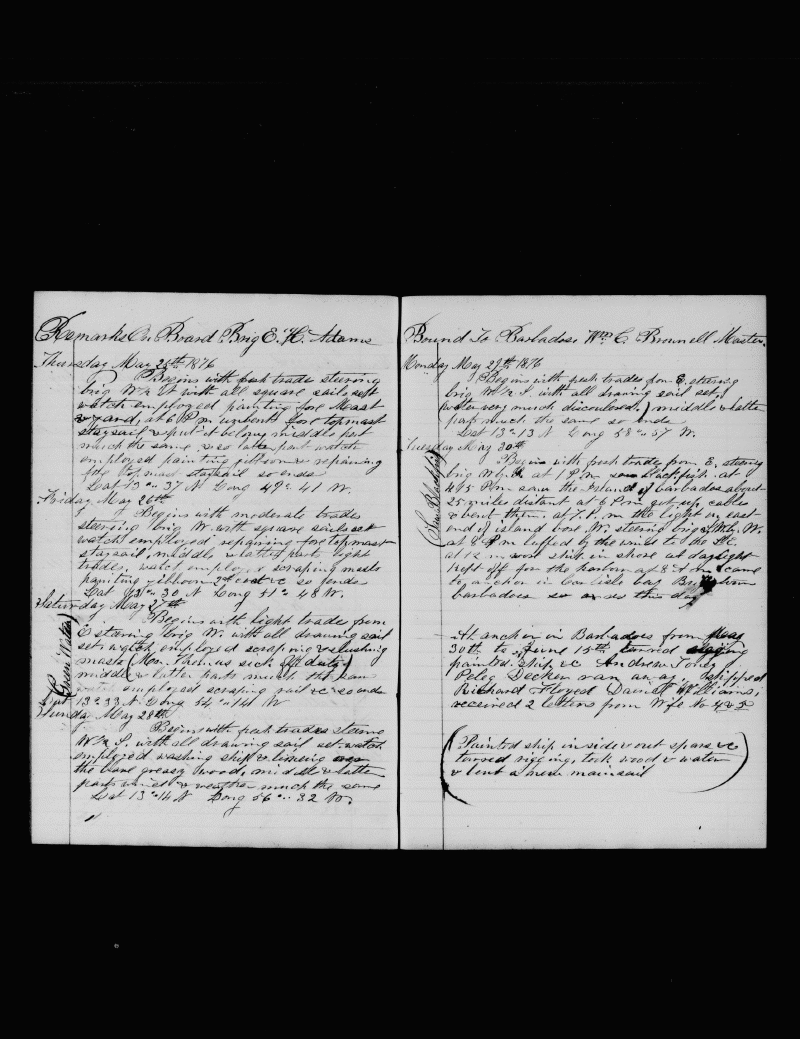 Remarks On Board Brig E. H. Adams
Thursday May 25th 1876
Begins with fresh trades steering
brig W with all square sails set
watch employed painting fore Mast
& yard, at 6 P m unbent fore topmast
staysail & put it below, middle part
much the same & so latter part watch
employed painting jibboom & repairing
fore topmast staysail so ends
Lat 13° 37 N Long 49° 41 W.
Friday May 26th
Begins with moderate trades
steering brig W. with square sails set
watch employed repairing fore topmast
staysail, middle & latter parts light
trades, watch employed scraping masts
painting jibboom 2nd coat &c so ends
Lat 13° 30 N Long 51° 48 W.
Saturday May 27th
Begins with light trades from
E steering brig W. with all drawing sail
set watch employed scraping & slushing
masts (Mr. Thomas sick off duty)
middle & latter parts much the same
watch employed scraping rail &c so ends
Lat 13° 33 N Long 54° 14 W
Green Water
Sunday May 28th
Begins with fresh trades steering
W & S. with all drawing sail set watch
employed washing ship &
the greasy wood, middle & latter
parts wind & weather much the same
Lat 13° 14 N Long 56° 32 W.
Bound To Barbados, Wm C. Brownell Master.
Monday May 29th 1876
Begins with fresh trades from E. steering
brig W & S. with all drawing sail set,
water very much discoulered.) middle & latter
parts much the same so ends
Lat 13° 13 N Long 58° 57 W.
Tuesday May 30th
Begins with fresh trades from E. steering
brig W at 1 P.m. saw blackfish at
4:15 P m saw the Island of barbados about
25 miles distant at 6 P m got up cables
& bent them, at 7. P. m the light on east
end of island bore W. steering brig W.
at 8 P m luffed by the wind to the
at 12 m wore ship in shore at daylight
kept off for the harbor at 8 A m came
to anchor in Carlisle bay
barbados so ends this day
Saw Blackfish
At anchor in Barbados from May
30th to June 15th tarred rigging
painted ship &c Andrew Toney
Peleg Decken ran away, shipped
Richard Floyed Daniel Williams;
received 2 letters from Wife No 4 & 5
(Painted ship inside & out spars &c
tarred rigging, took wood & water
& bent a new mainsail)